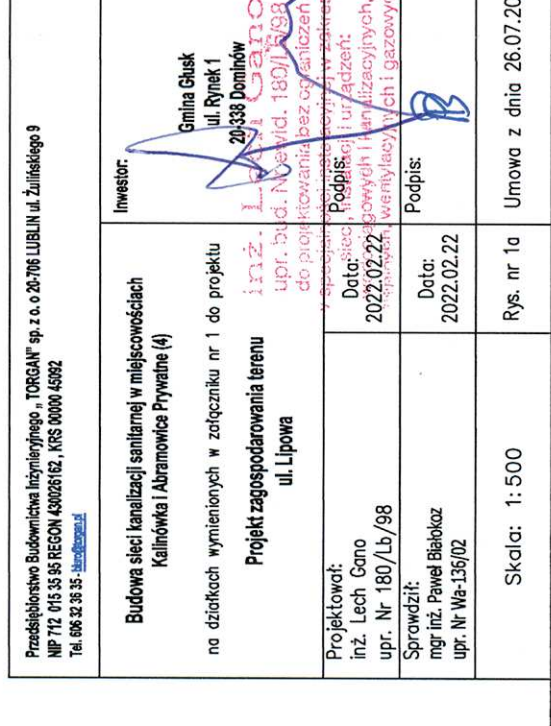 Przedsiębiorstwo Budownictwa Inżynieryjnego „TORGAN" sp. z o. o 20-706 LUBLIN ul. Żulińskiego 9
NIP 712 015 35 95 REGON 430026162, KRS 00000 45092
Tel. 606 32 36 35 - biuro@torgan.pl
Budowa sieci kanalizacji sanitarnej w miejscowościach
Kalinówka i Abramowice Prywatne (4)
na działkach wymienionych w załączniku nr 1 do projektu
Projekt zagospodarowania terenu
ul. Lipowa
Inwestor:
Gmina Głusk
ul. Rynek 1
20-338 Dominów
inż. Lech Gano
upr. bud. Nr ewid. 180/Lb/98
do projektowania bez ograniczeń
w specjalności instalacyjnej w zakresie
sieci, instalacji i urządzeń:
wodociągowych i kanalizacyjnych,
cieplnych, wentylacyjnych i gazowych
Projektował:
inż. Lech Gano
upr. Nr 180/Lb/98
Data:
2022.02.22
Podpis:
Sprawdził:
mgr inż. Paweł Białokoz
upr. Nr Wa-136/02
Data:
2022.02.22
Podpis:
Skala: 1:500
Rys. nr 1a
Umowa z dnia 26.07.20